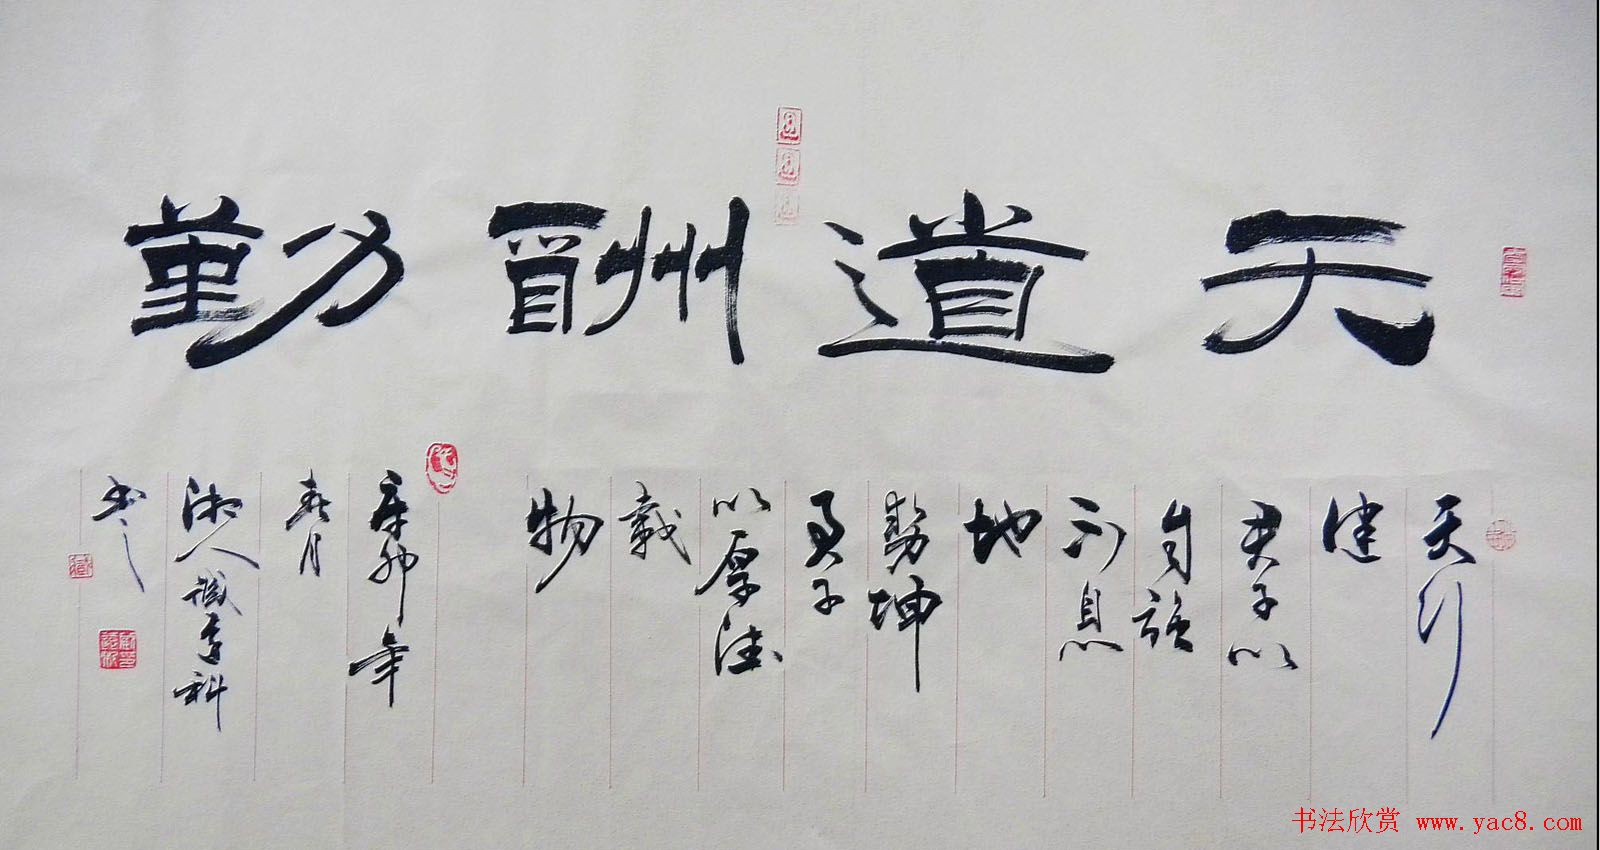 天道酬勤
天行
健
君子以
自强
不息
地
势坤
君子
以厚德
載
物
辛卯年
春月
湘人臧孝科
书之
书法欣赏 www.yac8.com